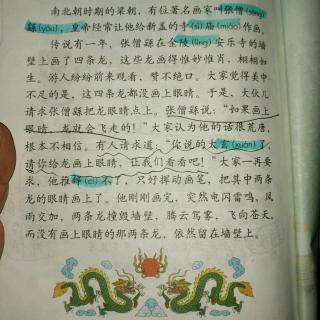 南北朝时期的梁朝，有位著名画家叫张僧(sēng)
繇(yóu)，皇帝经常让他给新盖的寺(sì)庙(miào)作画。
传说有一年，张僧繇在金陵(líng)安乐寺的墙
壁上画了四条龙，这些龙画得惟妙惟肖，栩栩如
生。游人纷纷前来观看，赞不绝口。大家觉得美中
不足的是，这四条龙都没画上眼睛。于是，大伙儿
请求张僧繇把龙眼睛点上。张僧繇说：“如果画上
眼睛，龙就会飞走的！”大家认为他的话很荒唐，
根本不相信。有人请求道：“你说的太玄(xuán)了，
请你给龙画上眼睛，让我们看看吧！”大家一再要
求，他推辞(cí)不了，只好挥动画笔，把其中两条
龙的眼睛画上了。他刚刚画完，突然电闪雷鸣，风
雨交加，两条龙撞毁墙壁，腾云驾雾，飞向苍天。
而没有画上眼睛的那两条龙，依然留在墙壁上。